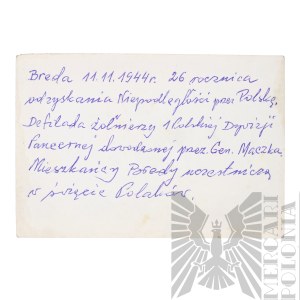 Breda 11.11.1944r. 26 rocznica
odzyskania Niepodległości przez Polskę.
Defilada żołnierzy 1 Polskiej Dywizji
Pancernej dowodzonej przez Gen. Maczka.
Mieszkańcy Bredy uczestniczą
w święcie Polaków.
MERCARI POLONIA